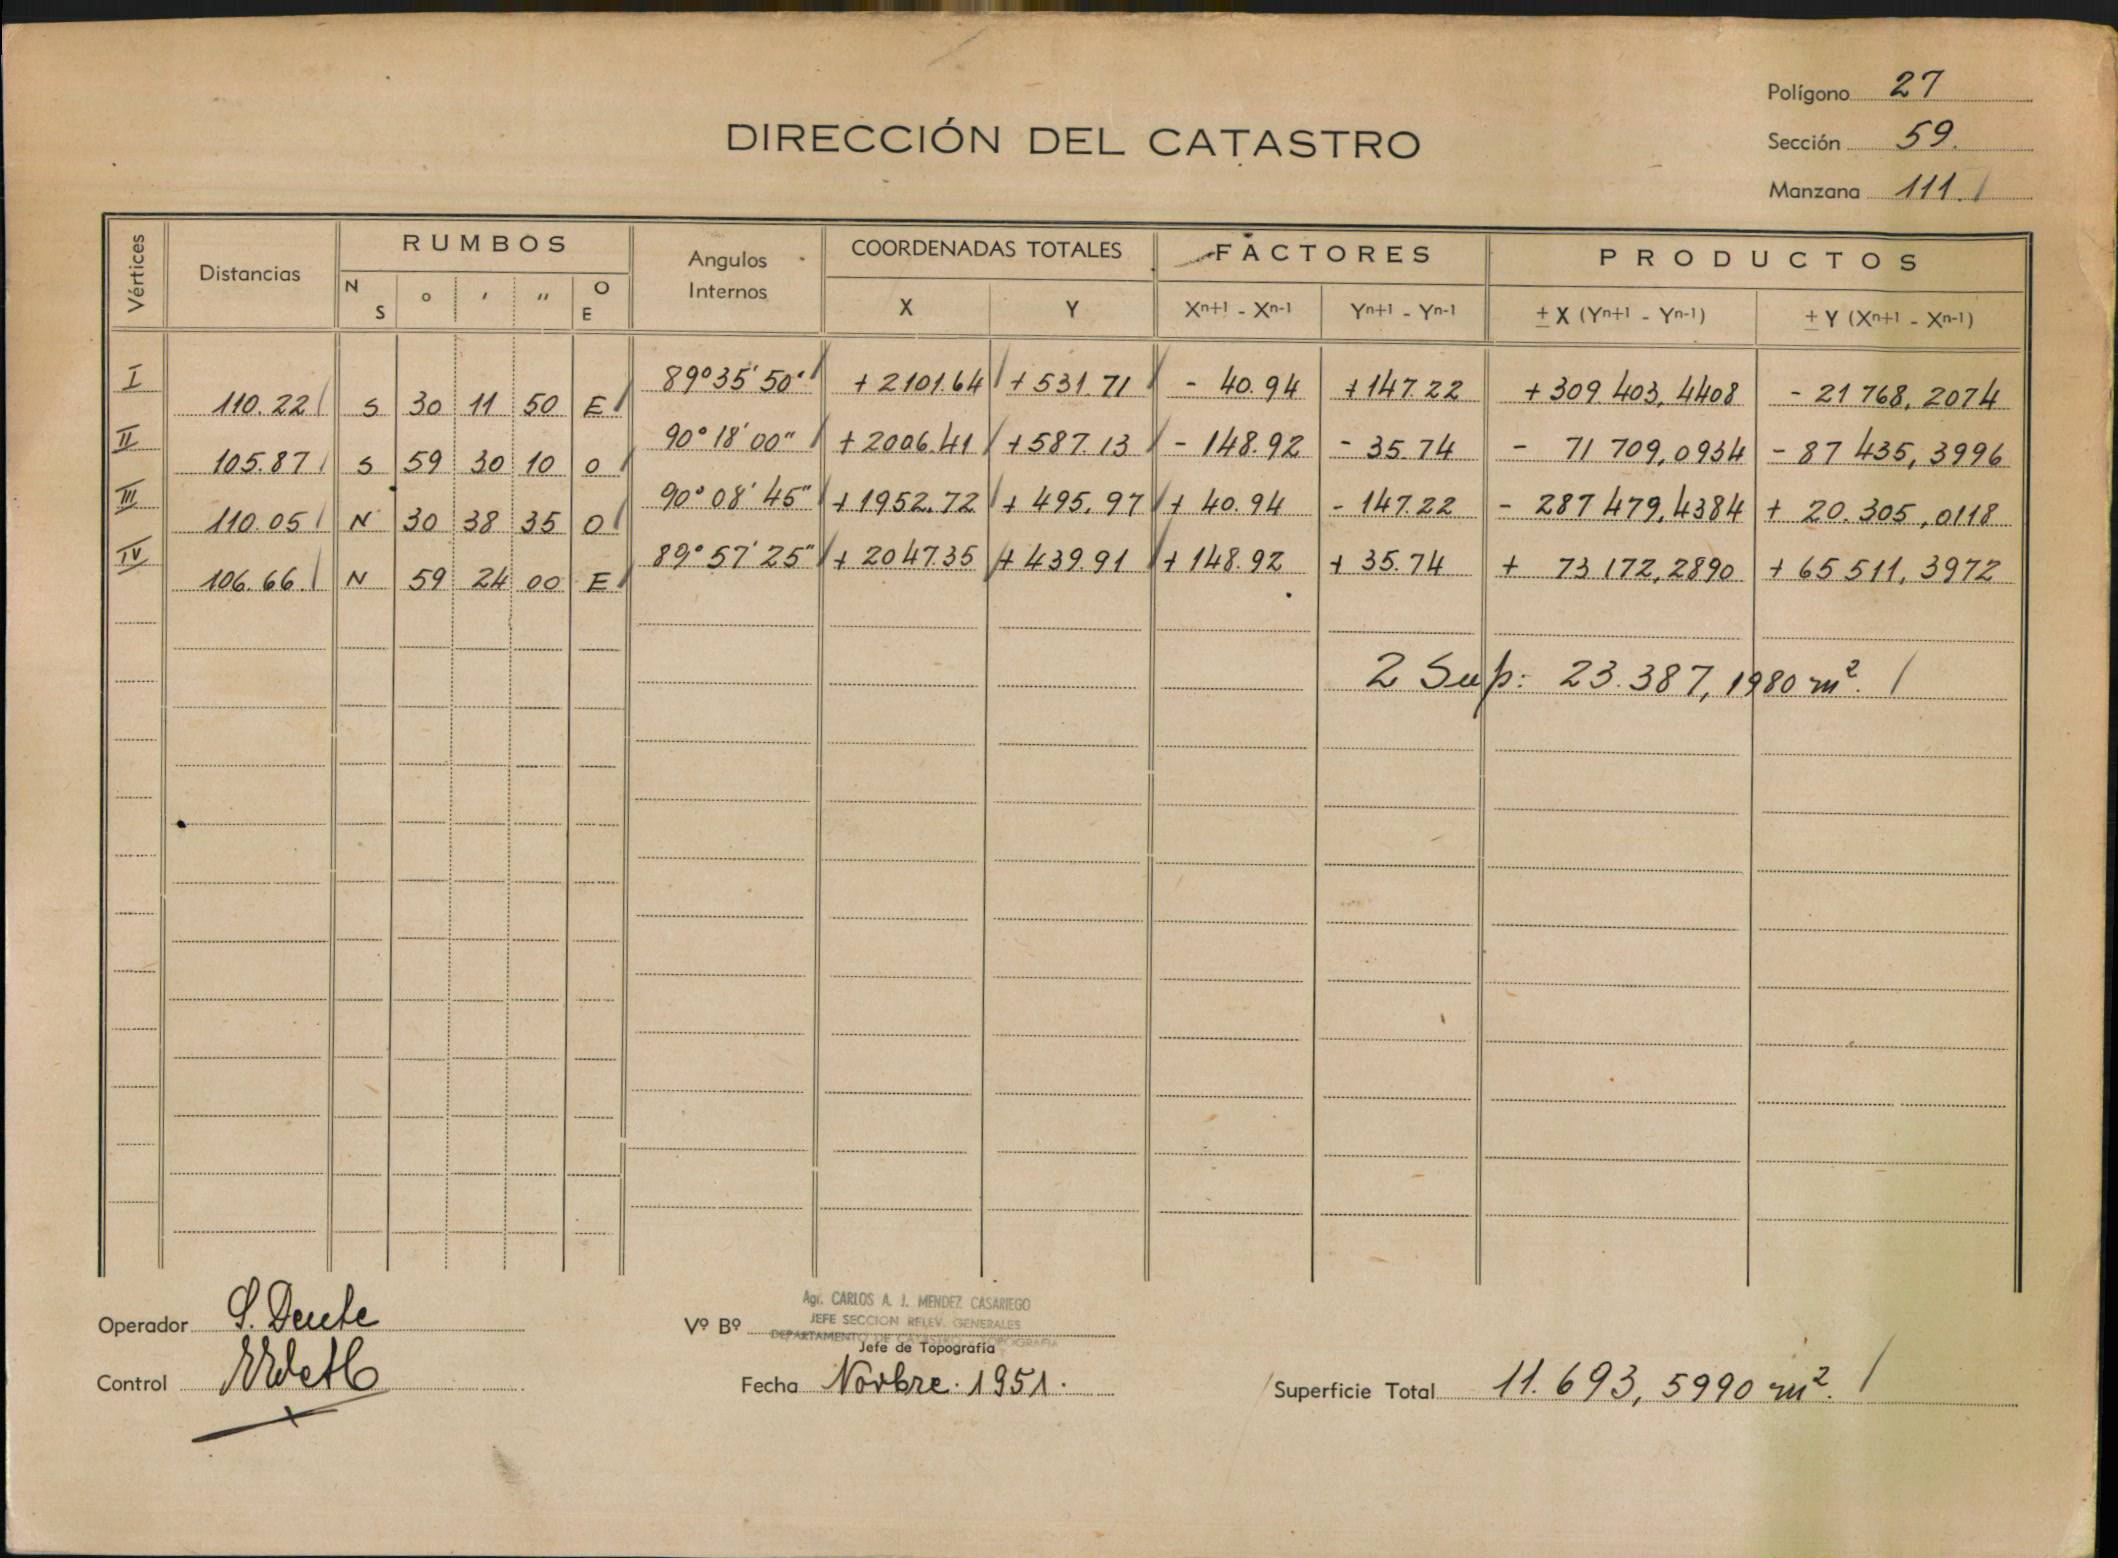 Polígono 27
DIRECCIÓN DEL CATASTRO
Sección 59.
Manzana 111.
Vértices Distancias RUMBOS N S ° ' " O E Angulos Internos COORDENADAS TOTALES X Y FACTORES Xn+1 - Xn-1 Yn+1 - Yn-1 PRODUCTOS ± X (Yn+1 - Yn-1) ± Y (Xn+1 - Xn-1)
I 89° 35' 50" + 2101.64 + 531.71 - 40.94 + 147.22 + 309.403,4408 - 21 768,2074
110.22 S 30 11 50 E
II 90° 18' 00" + 2006.41 + 587.13 - 148.92 - 35.74 - 71 709,0934 - 87 435,3996
105.87 S 59 30 10 O
III 90° 08' 45" + 1952.72 + 495.97 + 40.94 - 147.22 - 287 479,4384 + 20.305,0118
110.05 N 30 38 35 O
IV 89° 57' 25" + 2047.35 + 439.91 + 148.92 + 35.74 + 73 172,2890 + 65 511,3972
106.66 N 59 24 00 E
2 Sup: 23.387,1980 m².
Operador S. Dente
Vº Bº
Agr. CARLOS A. J. MENDEZ CASARIEGO
JEFE SECCION RELEV. GENERALES
DEPARTAMENTO DE CATASTRO Y TOPOGRAFIA
Jefe de Topografía
Control
Fecha Novbre. 1951.
Superficie Total 11.693,5990 m².